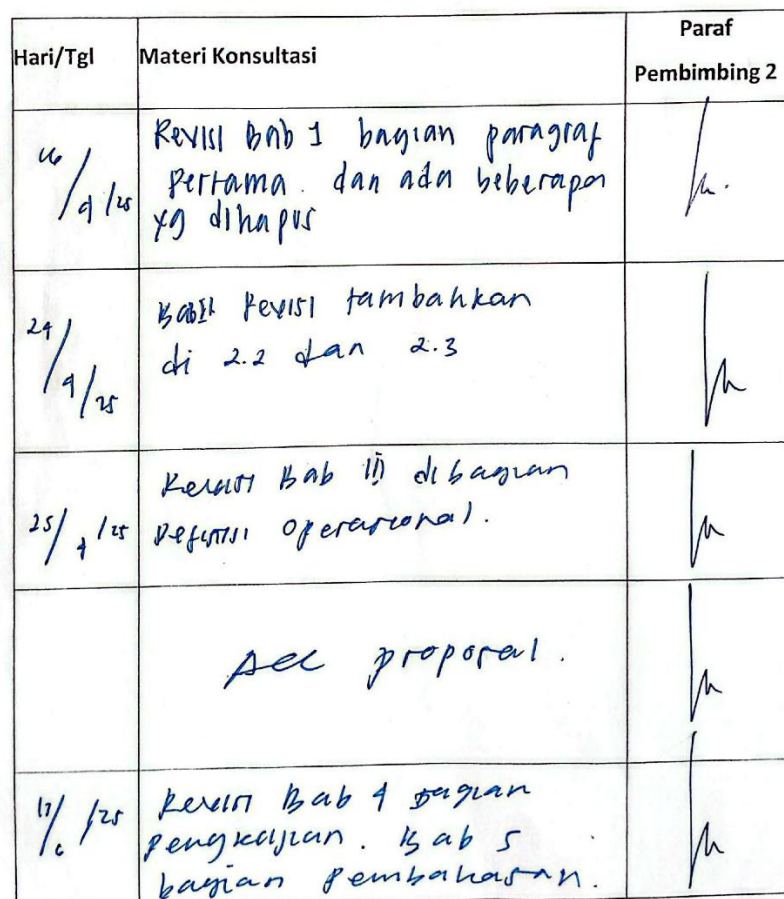 Hari/Tgl
Materi Konsultasi
Paraf
Pembimbing 2
16/4/25
Revisi Bab 1 bagian paragraf
pertama. dan ada beberapa
yg dihapus
24/4/25
Bab II Revisi tambahkan
di 2.2 dan 2.3
25/4/25
Revisi Bab III dibagian
Definisi operasional.
Acc proposal.
/6/25
Revisi Bab 4 bagian
pengkajian. Bab 5
bagian pembahasan.